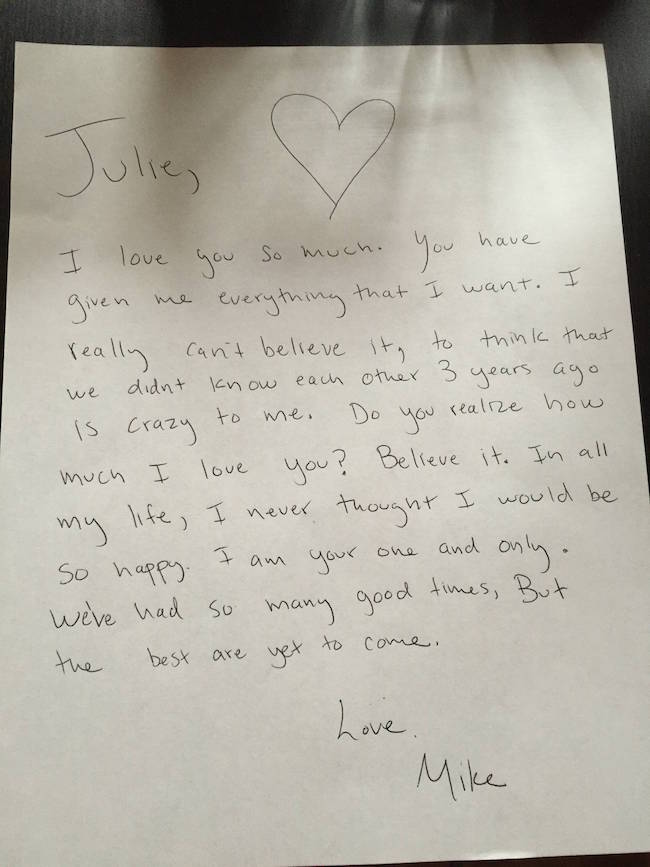 Julie,
I love you so much. You have
given me everything that I want. I
really can't believe it, to think that
we didnt know each other 3 years ago
is crazy to me. Do you realize how
much I love you? Believe it. In all
my life, I never thought I would be
so happy. I am your one and only.
We've had so many good times, But
the best are yet to come.
Love.
Mike